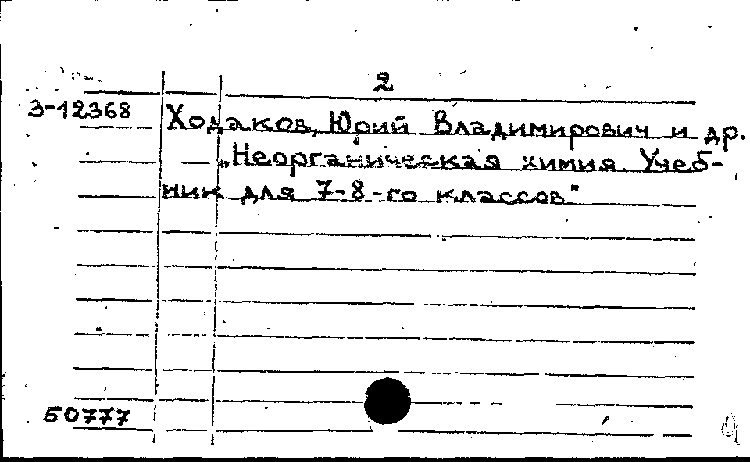 2
3-12368 Ходаков, Юрий Владимирович и др.
„Неорганическая химия Учеб-
ник для 7-8-го классов"
50777